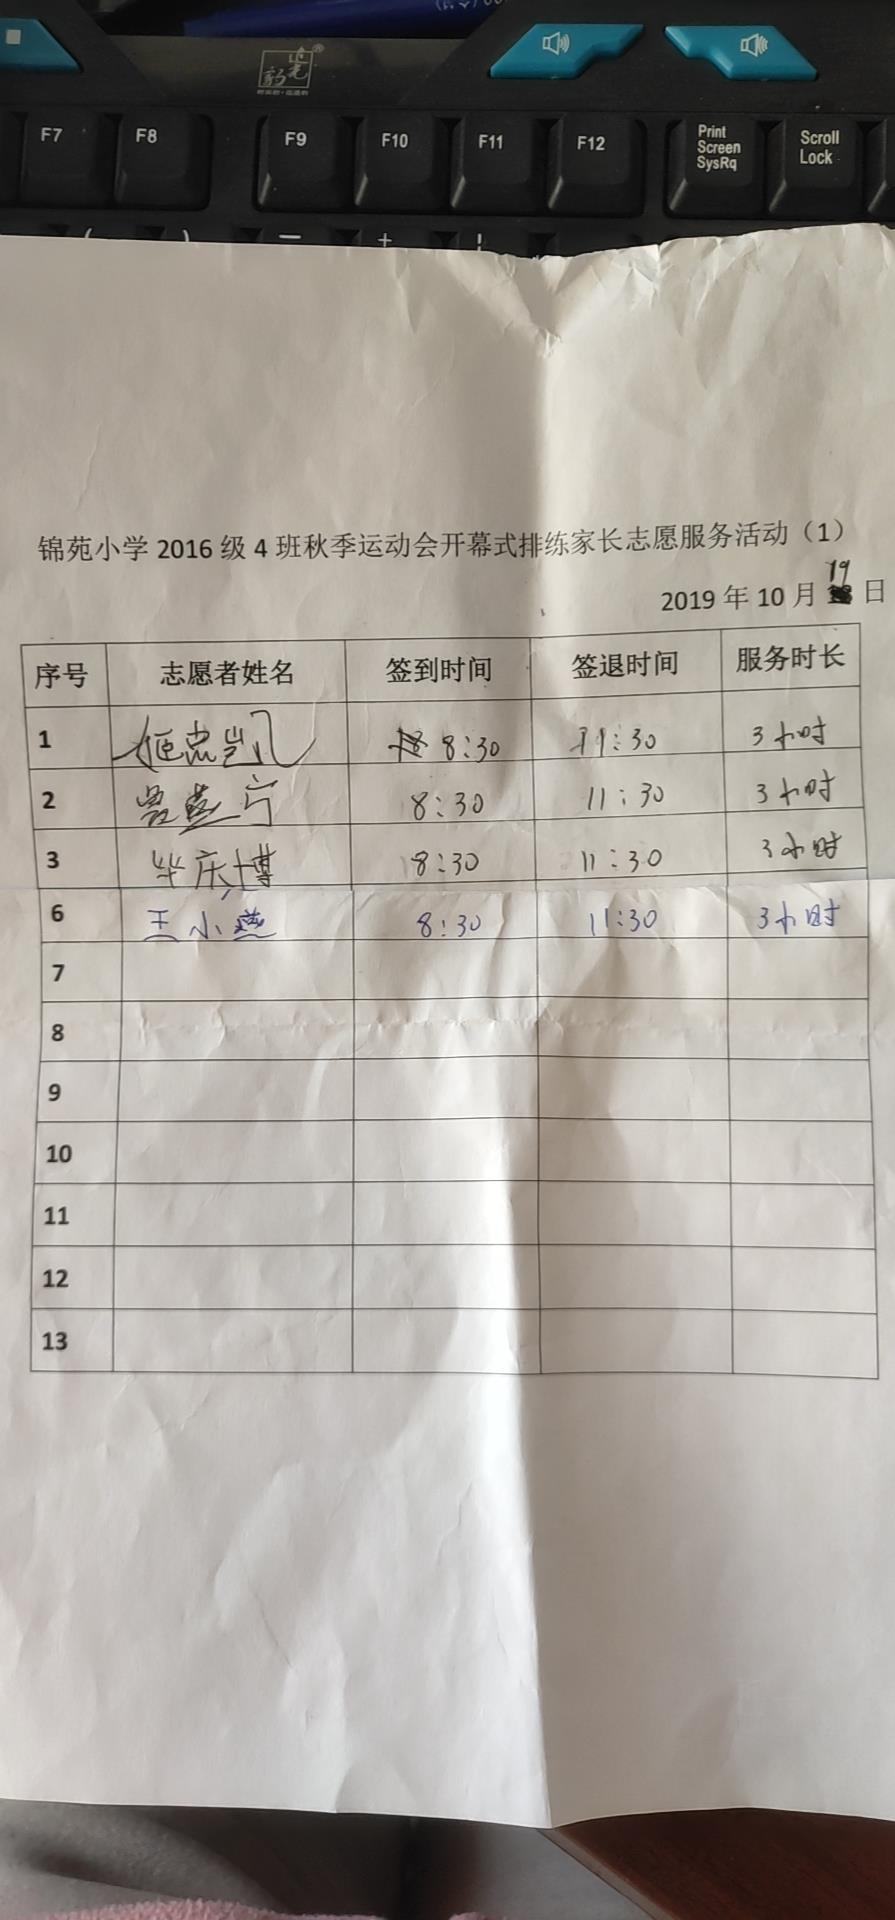 F7 F8 F9 F10 F11 F12 Print Screen SysRq Scroll Lock
锦苑小学 2016 级 4 班秋季运动会开幕式排练家长志愿服务活动（1）
2019 年 10 月 19 日
序号 志愿者姓名 签到时间 签退时间 服务时长
1 姬忠凯 8:30 11:30 3小时
2 8:30 11:30 3小时
3 毕庆博 8:30 11:30 3小时
6 王小燕 8:30 11:30 3小时
7
8
9
10
11
12
13